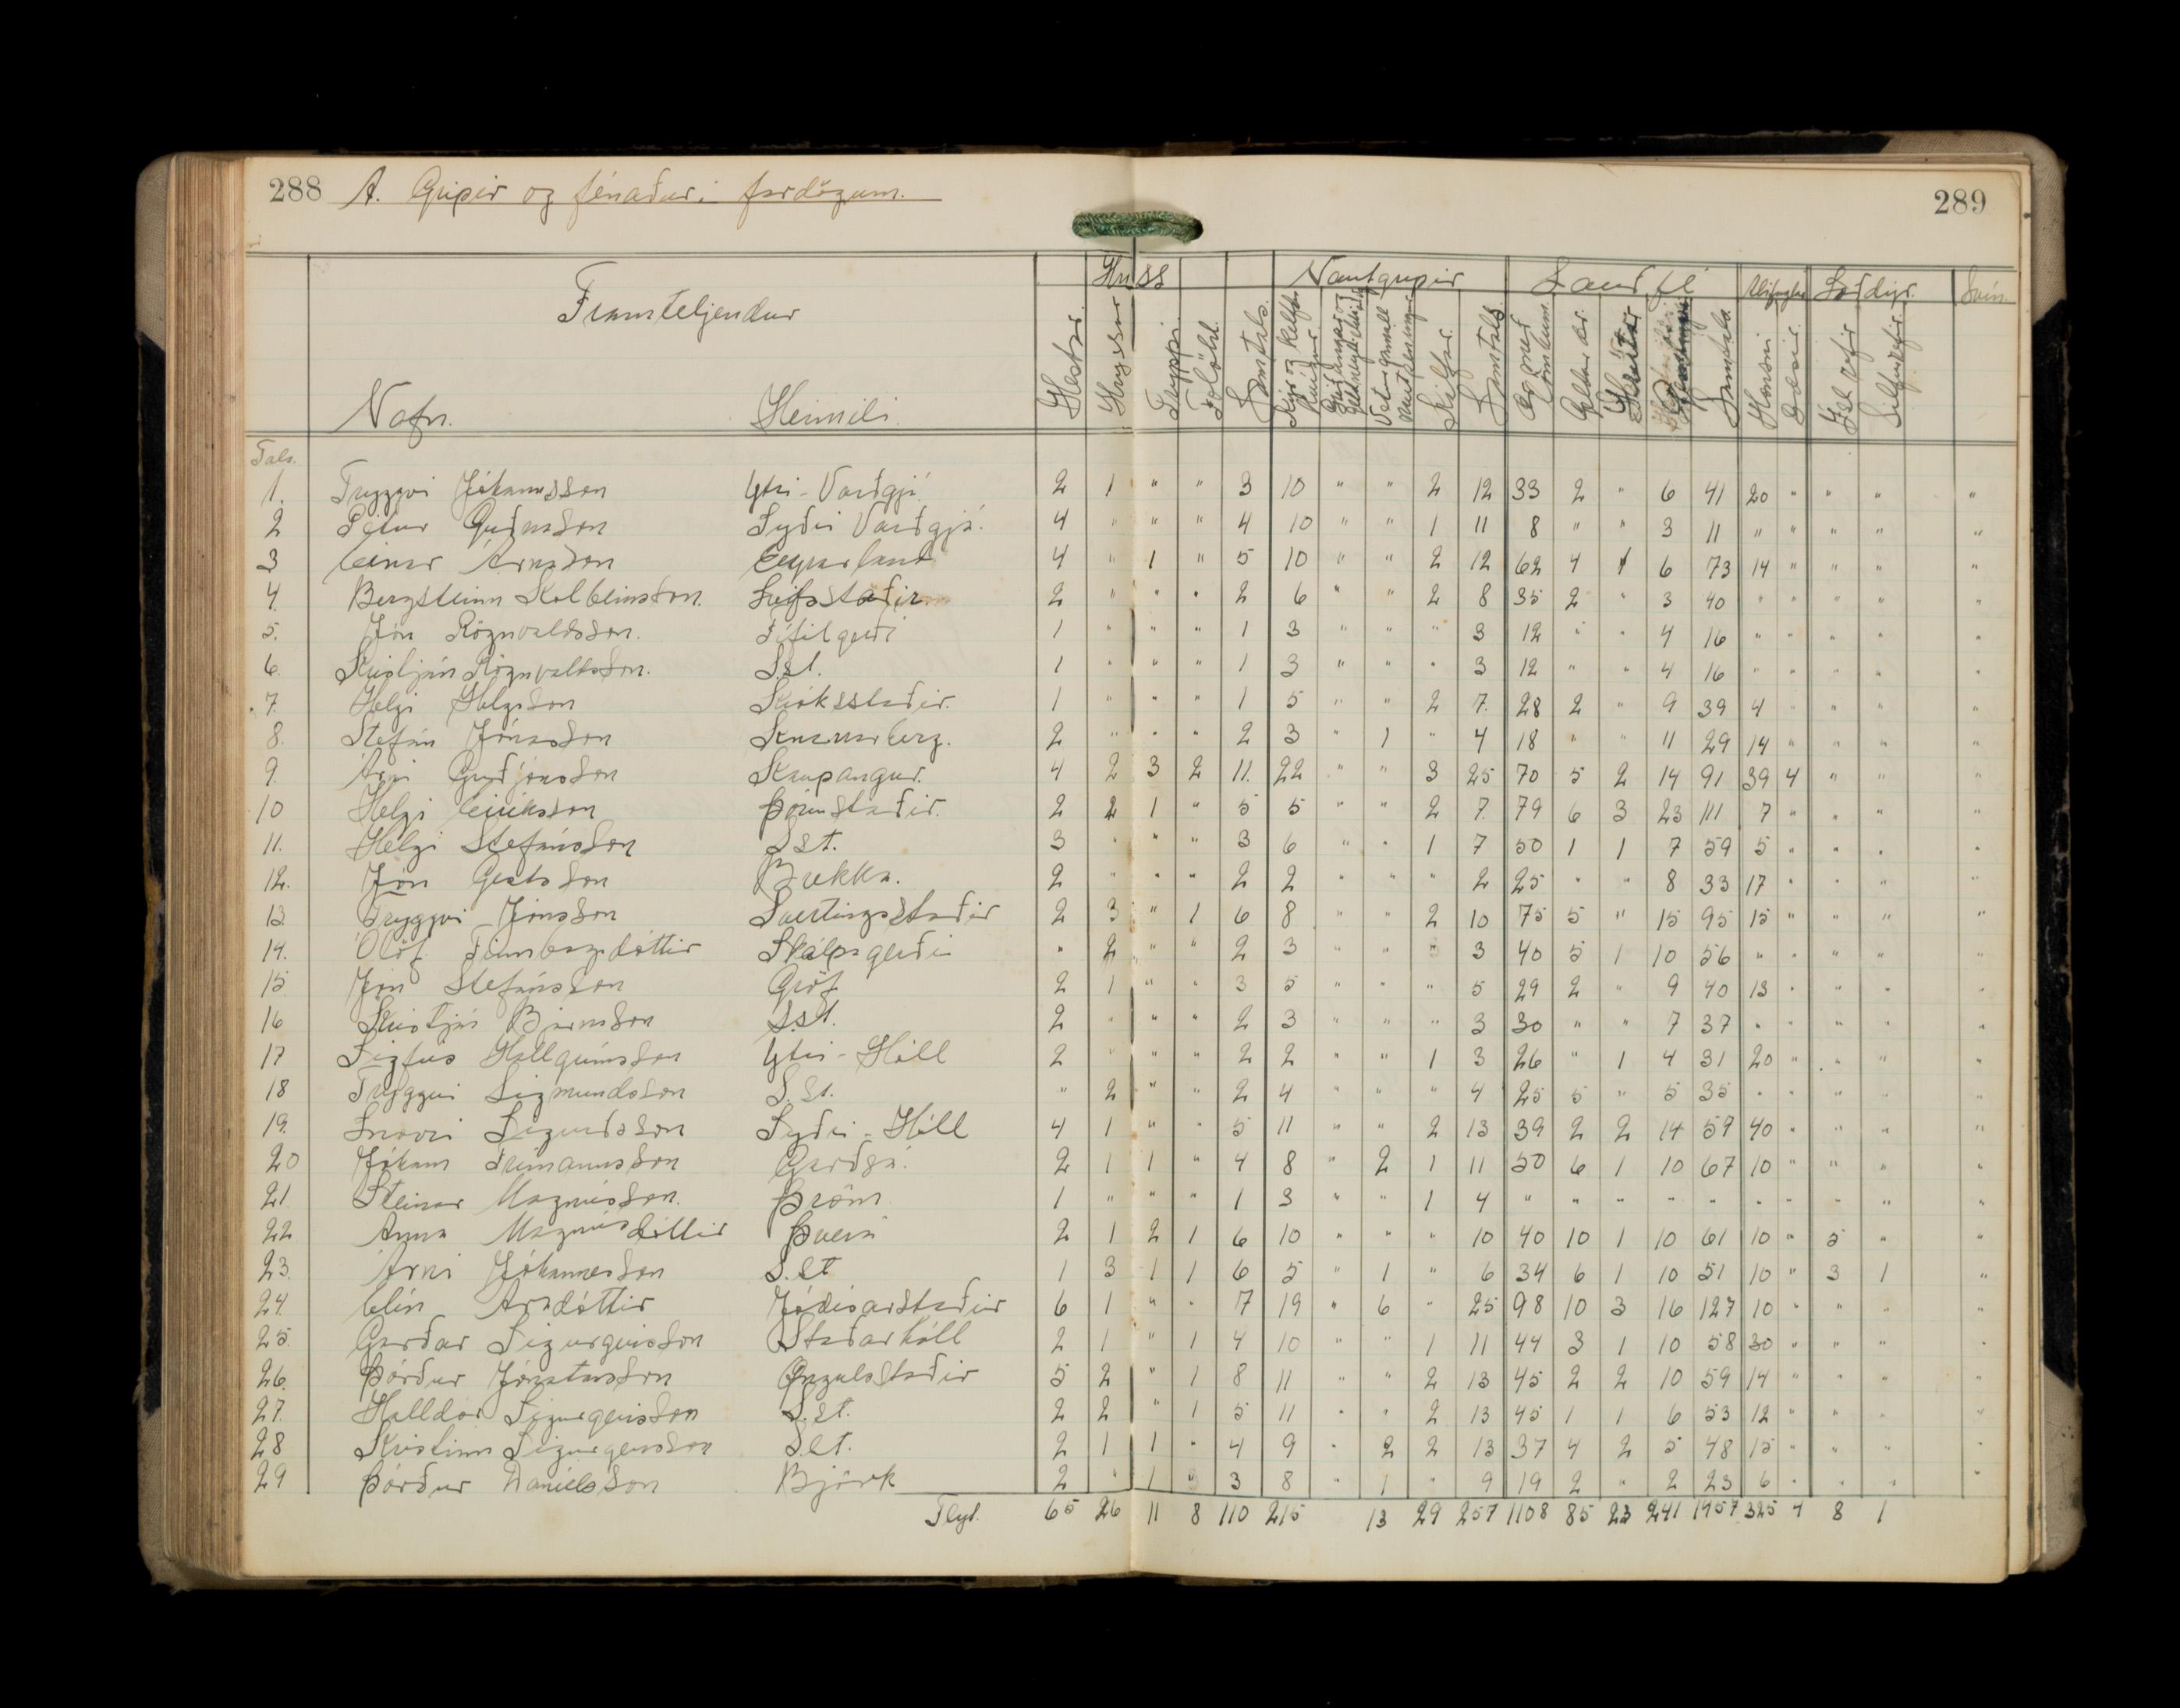 288 A. Gripir og fénaður í fardögum. 289
Hross Nautgripir Sauðfé Alifuglar Loðdýr. Svín
Framteljendur
Nafn. Heimili. Hestar. Hryssur Tryppi. Folöld. Samtals. Kýr og kelfdar kvígur Geldneyti Veturgamall nautpeningur Kálfar. Samtals Ær með lömbum. Geldar ær. Samtals Hænsni Endur. Refir Silfurrefir.
Tals.
1. Tryggvi Jóhannsson Ytri-Varðgjá 2 1 " " 3 10 " " 2 12 33 2 " 6 41 20 " " " "
2 Pétur Guðnason Syðri Varðgjá. 4 " " " 4 10 " " 1 11 8 " " 3 11 " " " " "
3 Einar Árnason Eyrarland 4 " 1 " 5 10 " " 2 12 62 4 1 6 73 14 " " " "
4. Bergsteinn Kolbeinsson. Leifsstaðir 2 " " " 2 6 " " 2 8 35 2 " 3 40 " " " " "
5. Jón Rögnvaldsson. Fífilgerði 1 " " " 1 3 " " " 3 12 " " 4 16 " " " " "
6. Kristján Rögnvaldsson. S.st. 1 " " " 1 3 " " " 3 12 " " 4 16 " " " " "
7. Helgi Helgason Króksstaðir. 1 " " " 1 5 " " 2 7. 28 2 " 9 39 4 " " " "
8. Stefán Jónasson Knarrarberg. 2 " " " 2 3 " 1 " 4 18 " " 11 29 14 " " " "
9. Árni Guðjónsson Kaupangur. 4 2 3 2 11. 22 " " 3 25 70 5 2 14 91 39 4 " " "
10 Helgi Eiríksson Þórustaðir. 2 2 1 " 5 5 " " 2 7. 79 6 3 23 111 7 " " " "
11. Helgi Stefánsson S.st. 3 " " " 3 6 " " 1 7 50 1 1 7 59 5 " " " "
12. Jón Gestsson Brekka. 2 " " " 2 2 " " " 2 25 " " 8 33 17 " " " "
13. Tryggvi Jónsson Svertingsstaðir 2 3 " 1 6 8 " " 2 10 75 5 " 15 95 15 " " " "
14. Ólöf Finnbogadóttir Skálpagerði " 2 " " 2 3 " " " 3 40 5 1 10 56 " " " " "
15 Jón Stefánsson Gröf 2 1 " " 3 5 " " " 5 29 2 " 9 40 13 " " " "
16 Kristján Bjarnason S.st. 2 " " " 2 3 " " " 3 30 " " 7 37 " " " " "
17 Sigfús Hallgrímsson Ytri-Hóll 2 " " " 2 2 " " 1 3 26 " 1 4 31 20 " " " "
18 Tryggvi Sigmundsson S.st. " 2 " " 2 4 " " " 4 25 5 " 5 35 " " " " "
19. Snorri Sigurðsson Syðri-Hóll 4 1 " " 5 11 " " 2 13 39 2 2 14 59 40 " " " "
20 Jóhann Frímannsson Garðsá. 2 1 1 " 4 8 " 2 1 11 50 6 1 10 67 10 " " " "
21 Steinar Magnússon. Þröm 1 " " " 1 3 " " 1 4 " " " " " " " " " "
22 Anna Magnúsdóttir Þverá 2 1 2 1 6 10 " " " 10 40 10 1 10 61 10 " 5 " "
23. Árni Jóhannesson S.st 1 3 1 1 6 5 " 1 " 6 34 6 1 10 51 10 " 3 1 "
24. Elín Aradóttir Jódísarstaðir 6 1 " " 7 19 " 6 " 25 98 10 3 16 127 10 " " " "
25. Garðar Sigurgeirsson Staðarhóll 2 1 " 1 4 10 " " 1 11 44 3 1 10 58 30 " " " "
26. Þórður Jónatansson Öngulsstaðir 5 2 " 1 8 11 " " 2 13 45 2 2 10 59 14 " " " "
27. Halldór Sigurgeirsson S.st. 2 2 " 1 5 11 " " 2 13 45 1 1 6 53 12 " " " "
28 Kristinn Sigurgeirsson S.st. 2 1 1 " 4 9 " 2 2 13 37 4 2 5 48 15 " " " "
29 Þórður Daníelsson Björk 2 " 1 " 3 8 " 1 " 9 19 2 " 2 23 6 " " " "
Flyt. 65 26 11 8 110 215 13 29 257 1108 85 23 241 1457 325 4 8 1